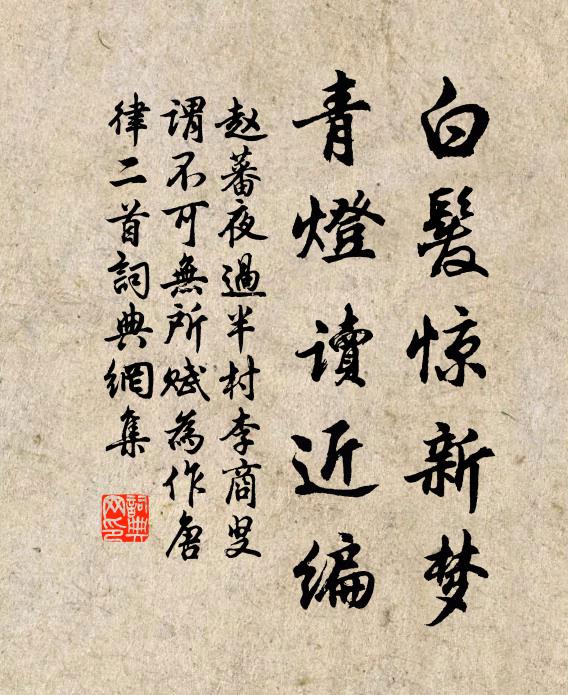 白髮惊新梦
青燈讀近编
赵蕃夜過半村李商叟
謂不可無所赋為作唐
律二首詞典網集
詞典
网印